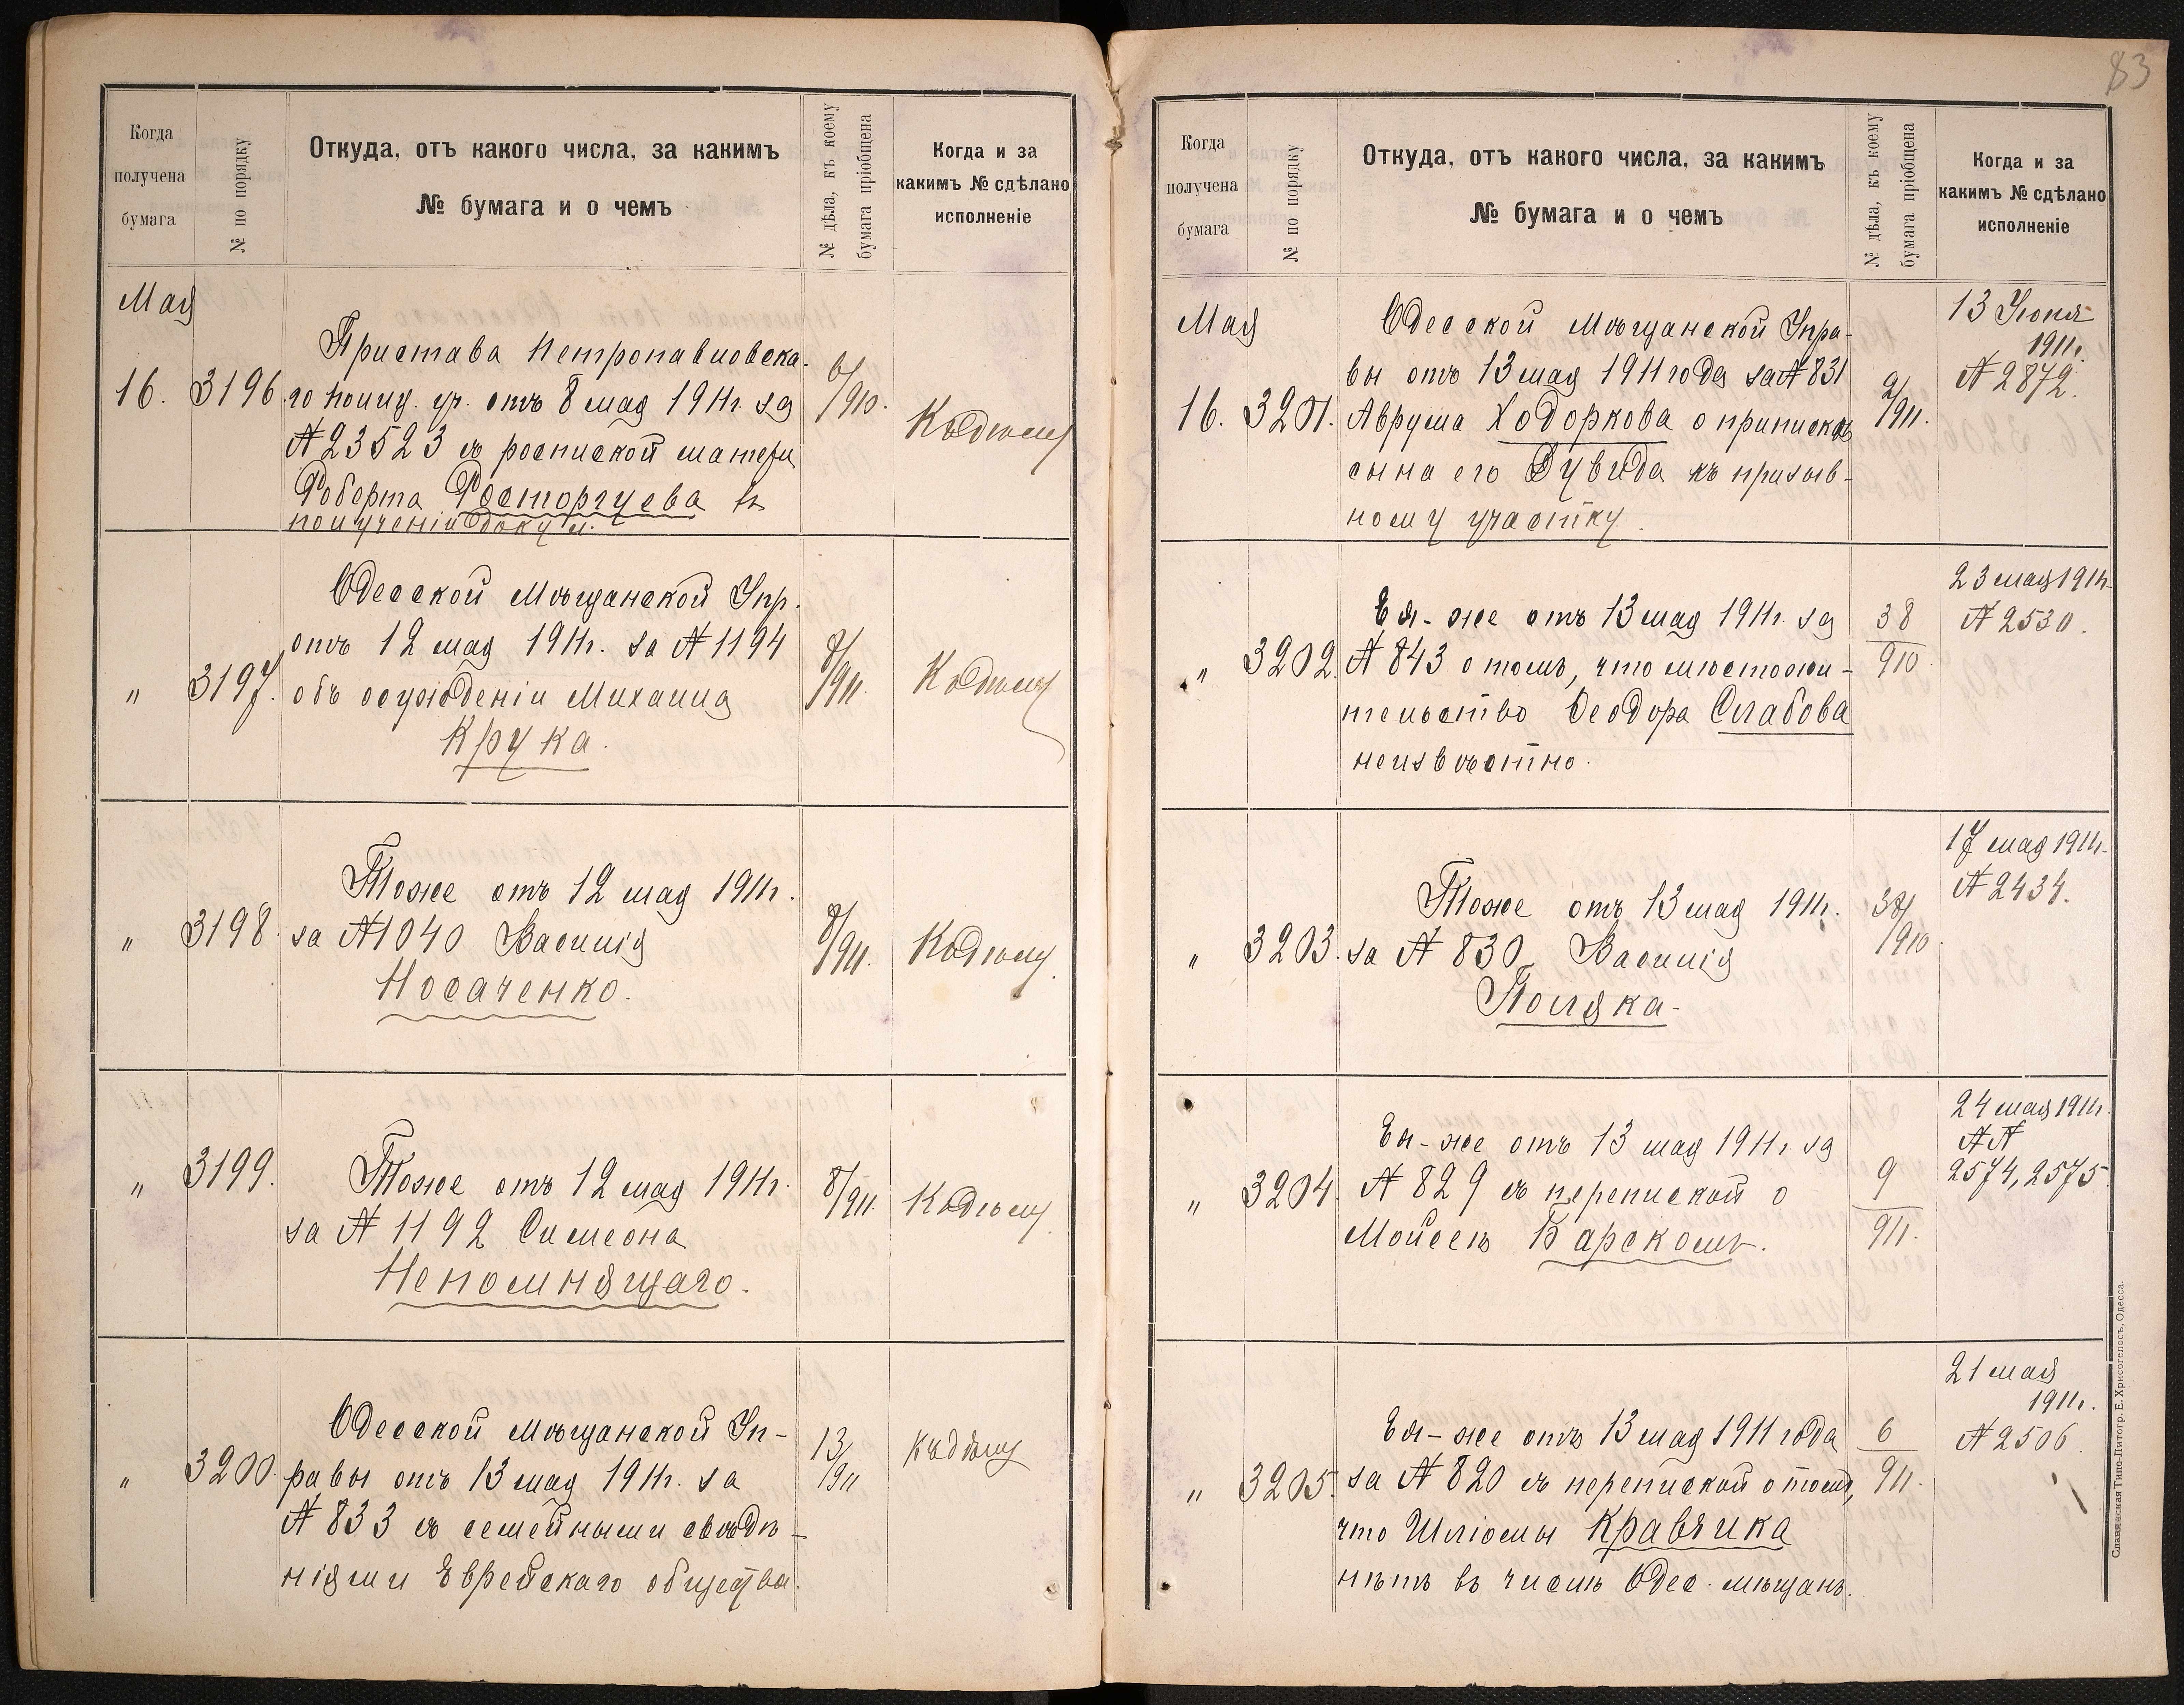 83
Когда
получена
бумага
№ по порядку
Откуда, отъ какого числа, за какимъ
№ бумага и о чемъ
№ дѣла, къ коему
бумага пріобщена
Когда и за
какимъ № сдѣлано
исполненіе
Мая
16.
3196
Пристава Петропавловска-
го полиц. уч. отъ 8 мая 1911г. за
№ 23523 съ роспиской матери
Роберта Расторгуева въ
полученіи докум.
6/910.
Къ дѣлу
"
3197.
Одесской Мѣщанской Упр.
отъ 12 мая 1911г. за № 1194
объ осужденіи Михаила
Крука.
8/911.
Къ дѣлу
"
3198.
Тоже отъ 12 мая 1911г.
за № 1040 Василія
Носаченко.
8/911.
Къ дѣлу
"
3199.
Тоже отъ 12 мая 1911г.
за № 1192 Симеона
Непомнящаго.
8/911.
Къ дѣлу
"
3200.
Одесской Мѣщанской Уп-
равы отъ 13 мая 1911г. за
№ 833 съ семейными свѣдѣ-
ніями Еврейскаго общества.
13/911
Къ дѣлу
Когда
получена
бумага
№ по порядку
Откуда, отъ какого числа, за какимъ
№ бумага и о чемъ
№ дѣла, къ коему
бумага пріобщена
Когда и за
какимъ № сдѣлано
исполненіе
Мая
16.
3201.
Одесской Мѣщанской Упра-
вы отъ 13 мая 1911 года за № 831
Аврума Ходоркова о припискѣ
сына его Дувида къ призыв-
ному участку.
9/911.
13 Іюня
1911г.
№ 2872.
"
3202.
Ея-же отъ 13 мая 1911г. за
№ 843 о томъ, что мѣстожи-
тельство Ѳеодора Слабова
неизвѣстно.
38
910.
23 мая 1911г.
№ 2530.
"
3203.
Тоже отъ 13 мая 1911г.
за № 830 Василія
Поляка.
38/910
17 мая 1911г.
№ 2434.
"
3204.
Ея-же отъ 13 мая 1911г. за
№ 829 съ перепиской о
Мойсеѣ Барскомъ.
9
911.
24 мая 1911г.
№№
2574, 2575
"
3205.
Ея-же отъ 13 мая 1911 года
за № 820 съ перепиской о томъ,
что Шліомы Кравчика
нѣтъ въ числѣ Одес. мѣщанъ.
6
911.
21 мая
1911г.
№ 2506.
Славянская Типо-Литогр. Е. Хрисогелосъ, Одесса.